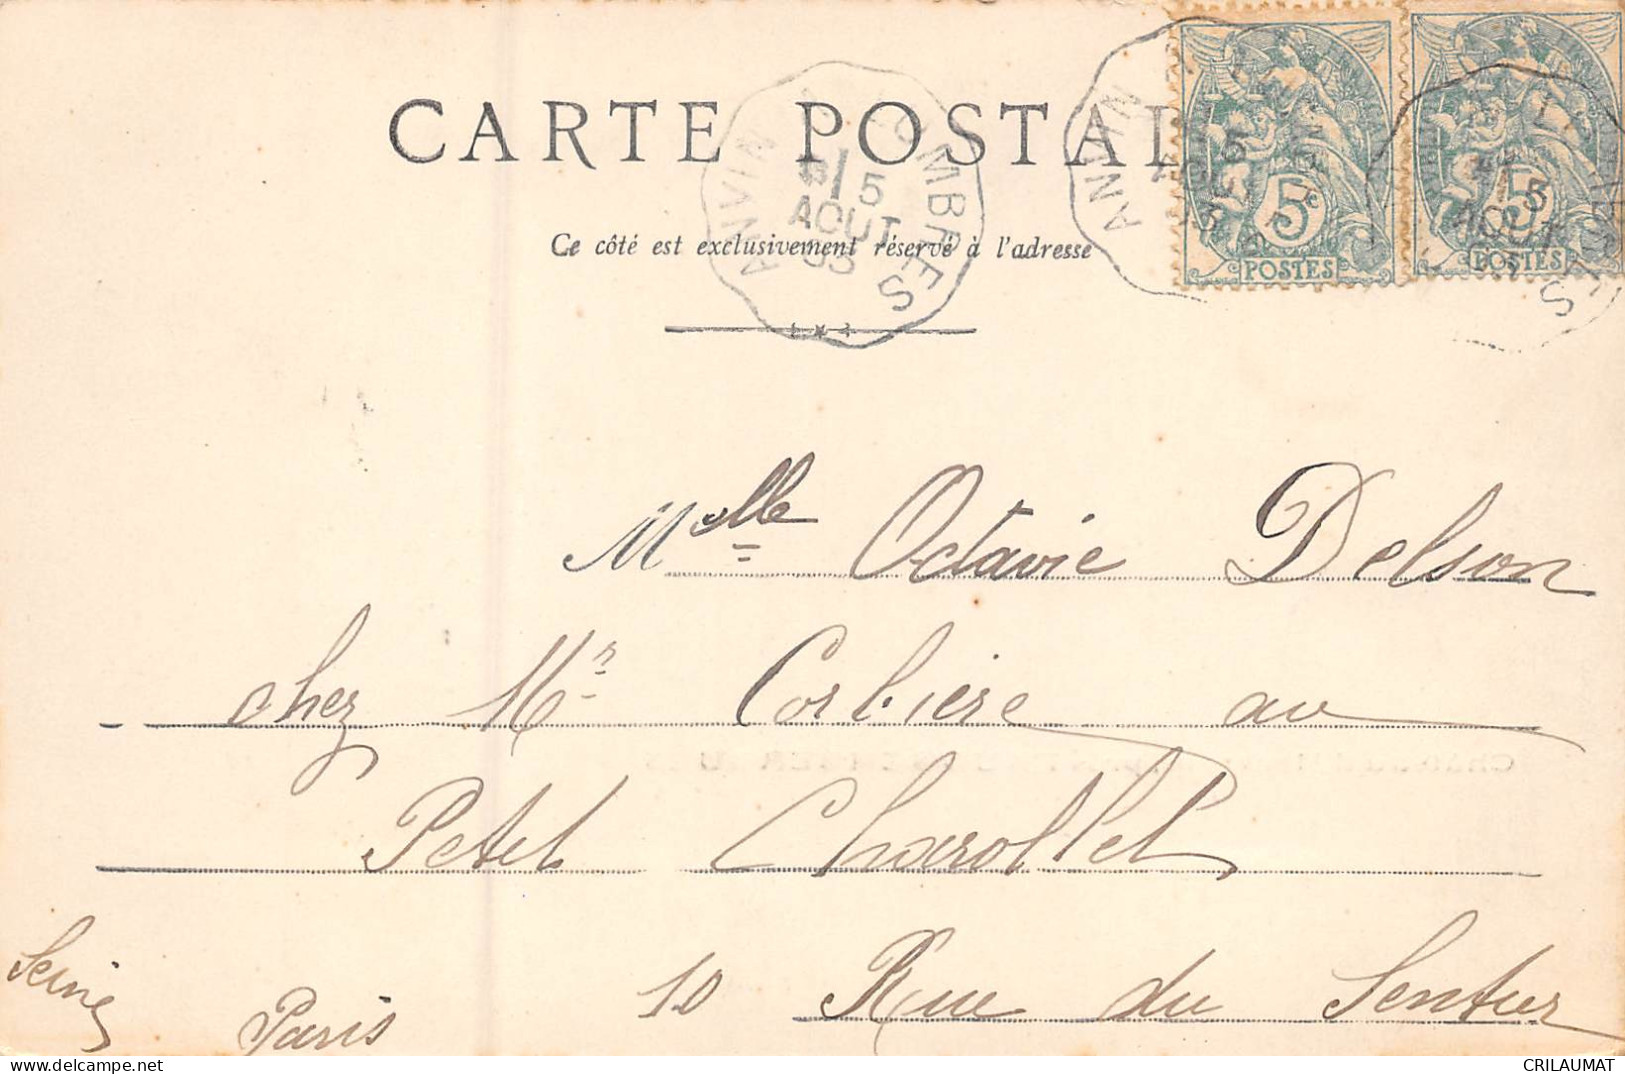 CARTE POSTALE
Ce côté est exclusivement réservé à l'adresse
ANVIN A LUMBRES
15
AOUT
5c
POSTES
5c
POSTES
Melle Octavie Delson
chez Mr Corbiere au
Petit Charollet
10 Rue du Sentier
Seine Paris
CRILAUMAT